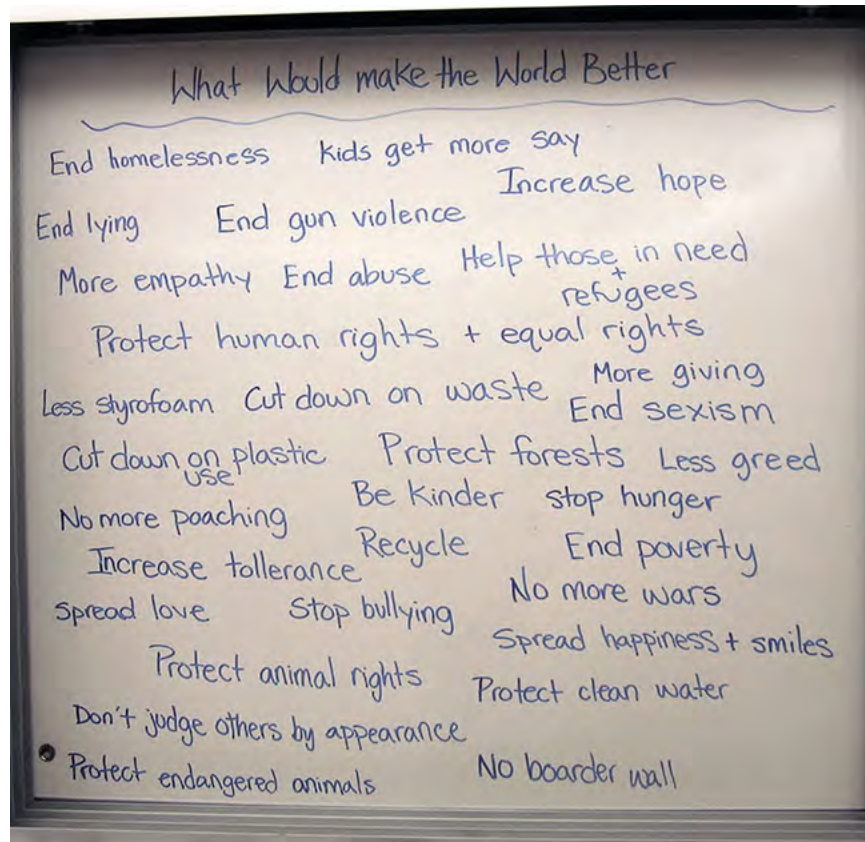 What Would make the World Better
End homelessness   Kids get more say
Increase hope
End lying   End gun violence
More empathy   End abuse   Help those in need
+
refugees
Protect human rights + equal rights
Less styrofoam   Cut down on waste   More giving
End sexism
Cut down on plastic   Protect forests   Less greed
use
No more poaching   Be Kinder   Stop hunger
Increase tollerance   Recycle   End poverty
Spread love   Stop bullying   No more wars
Spread happiness + smiles
Protect animal rights   Protect clean water
Don't judge others by appearance
Protect endangered animals   No boarder wall